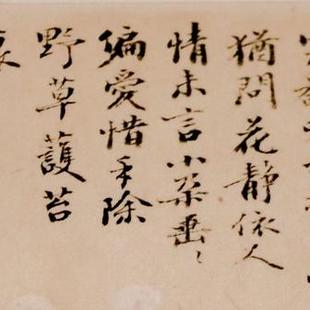 猶問花靜依人
情未言小朵垂〻
偏愛惜手除
野草護苔